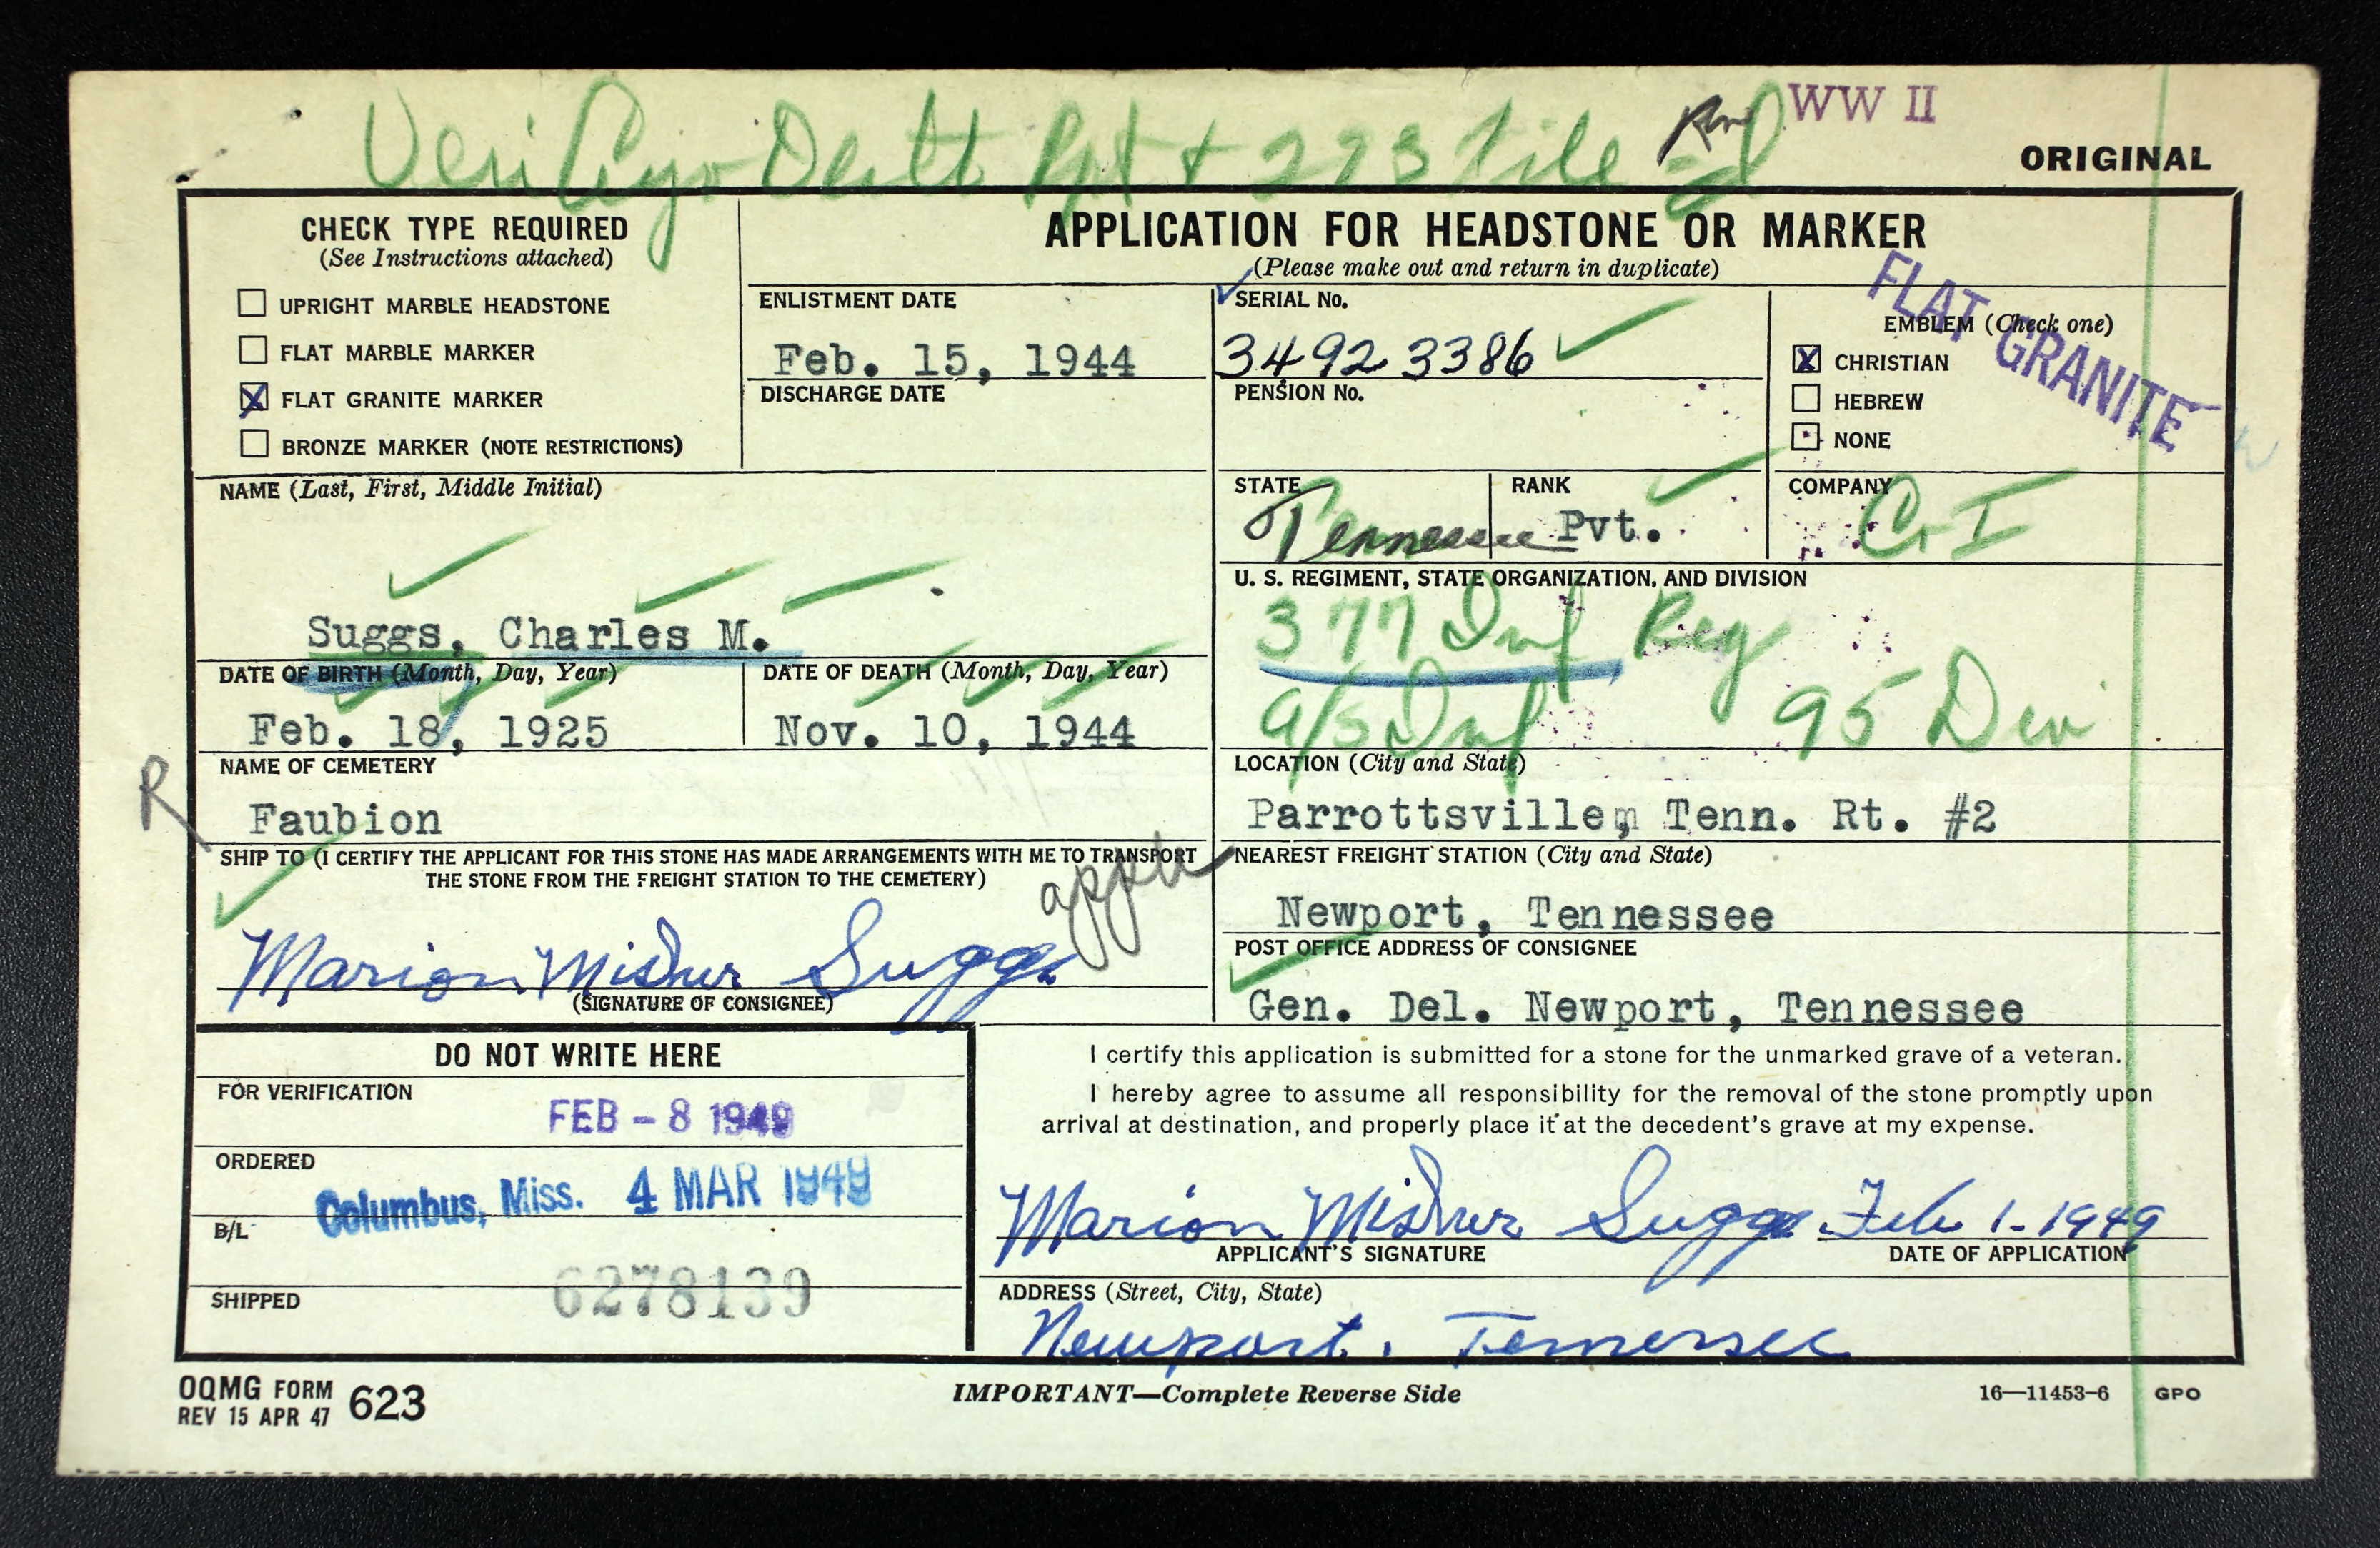 WW II
ORIGINAL
CHECK TYPE REQUIRED
(See Instructions attached)
UPRIGHT MARBLE HEADSTONE
FLAT MARBLE MARKER
X FLAT GRANITE MARKER
BRONZE MARKER (NOTE RESTRICTIONS)
APPLICATION FOR HEADSTONE OR MARKER
(Please make out and return in duplicate)
ENLISTMENT DATE
Feb. 15, 1944
DISCHARGE DATE
SERIAL No.
34923386
PENSION No.
FLAT GRANITE
EMBLEM (Check one)
X CHRISTIAN
HEBREW
NONE
NAME (Last, First, Middle Initial)
Suggs, Charles M.
STATE
Tennessee
RANK
Pvt.
COMPANY
Co I
U. S. REGIMENT, STATE ORGANIZATION, AND DIVISION
377 Inf Reg
a/s Inf 95 Div
DATE OF BIRTH (Month, Day, Year)
Feb. 18, 1925
DATE OF DEATH (Month, Day, Year)
Nov. 10, 1944
NAME OF CEMETERY
R
Faubion
LOCATION (City and State)
Parrottsville, Tenn. Rt. #2
SHIP TO (I CERTIFY THE APPLICANT FOR THIS STONE HAS MADE ARRANGEMENTS WITH ME TO TRANSPORT
THE STONE FROM THE FREIGHT STATION TO THE CEMETERY)
Marion Misner Suggs
(SIGNATURE OF CONSIGNEE)
NEAREST FREIGHT STATION (City and State)
Newport, Tennessee
POST OFFICE ADDRESS OF CONSIGNEE
Gen. Del. Newport, Tennessee
DO NOT WRITE HERE
FOR VERIFICATION
FEB - 8 1949
ORDERED
Columbus, Miss. 4 MAR 1949
B/L
6278139
SHIPPED
I certify this application is submitted for a stone for the unmarked grave of a veteran.
I hereby agree to assume all responsibility for the removal of the stone promptly upon
arrival at destination, and properly place it at the decedent's grave at my expense.
Marion Misner Suggs Feb 1-1949
APPLICANT'S SIGNATURE
DATE OF APPLICATION
ADDRESS (Street, City, State)
Newport, Tennessee
OQMG FORM 623
REV 15 APR 47
IMPORTANT—Complete Reverse Side
16—11453-6 GPO